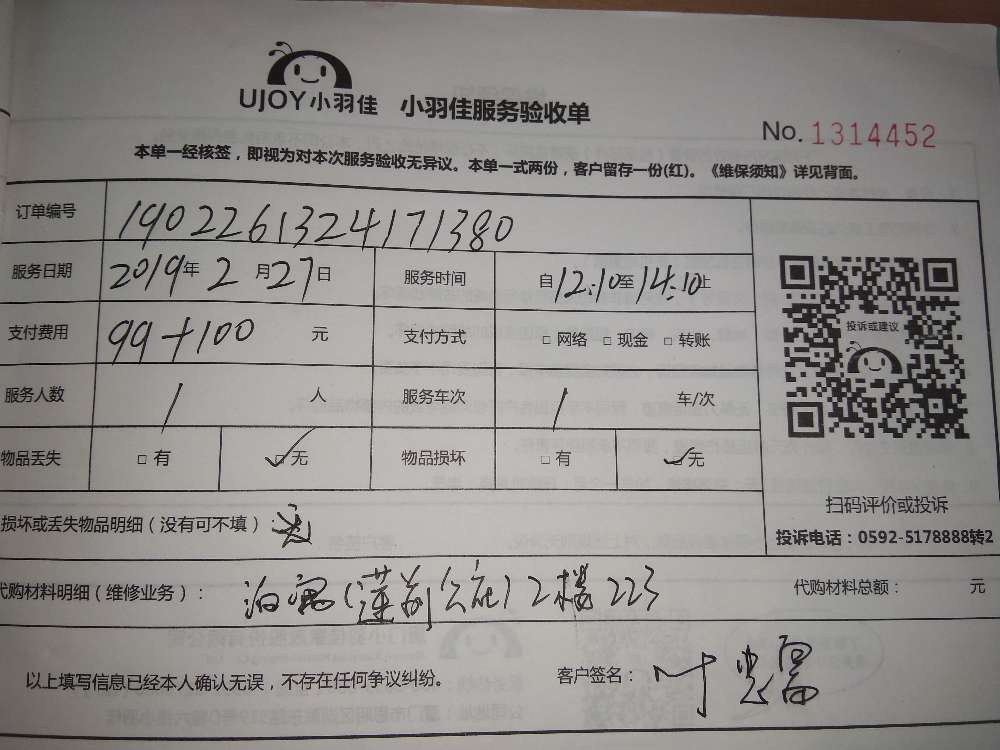 UJOY小羽佳 小羽佳服务验收单
No. 1314452
本单一经核签，即视为对本次服务验收无异议。本单一式两份，客户留存一份(红)。《维保须知》详见背面。
订单编号 1902261324171380
服务日期 2019年2月27日 服务时间 自12:10至14:10止
支付费用 99+100 元 支付方式 □ 网络 □ 现金 □ 转账
投诉或建议
服务人数 1 人 服务车次 1 车/次
物品丢失 □ 有 ☑ 无 物品损坏 □ 有 ☑ 无
扫码评价或投诉
损坏或丢失物品明细（没有可不填）：
投诉电话：0592-5178888转2
代购材料明细（维修业务）： 泊寓(莲前公寓)2楼223 代购材料总额： 元
以上填写信息已经本人确认无误，不存在任何争议纠纷。 客户签名： 叶